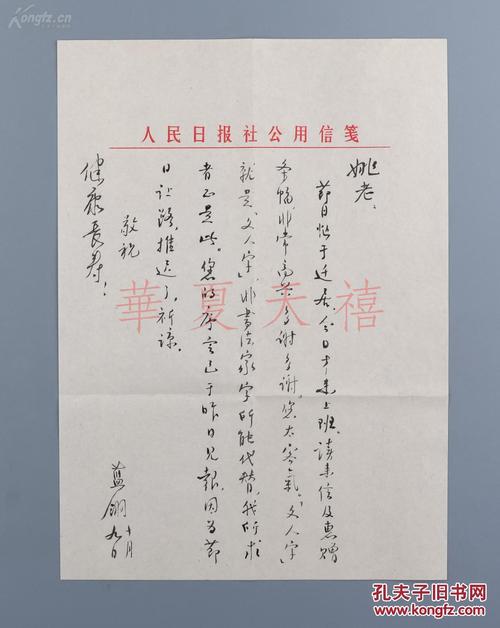 Kongfz.cn
中国收藏热线
人民日报社公用信笺
姚老：
节日忙于迁居，今日才来上班。读来信及惠赠
条幅，非常高兴，多谢多谢。您太客气。“文人字”
就是“文人字”，非书法家字所能代替，我所求
者正是此。您的序言已于昨日见报，因为节
日让路，推迟了，祈谅。
敬祝
健康长寿！
蓝翎
十月
九日
華夏天禧
孔夫子旧书网
www.kongfz.com